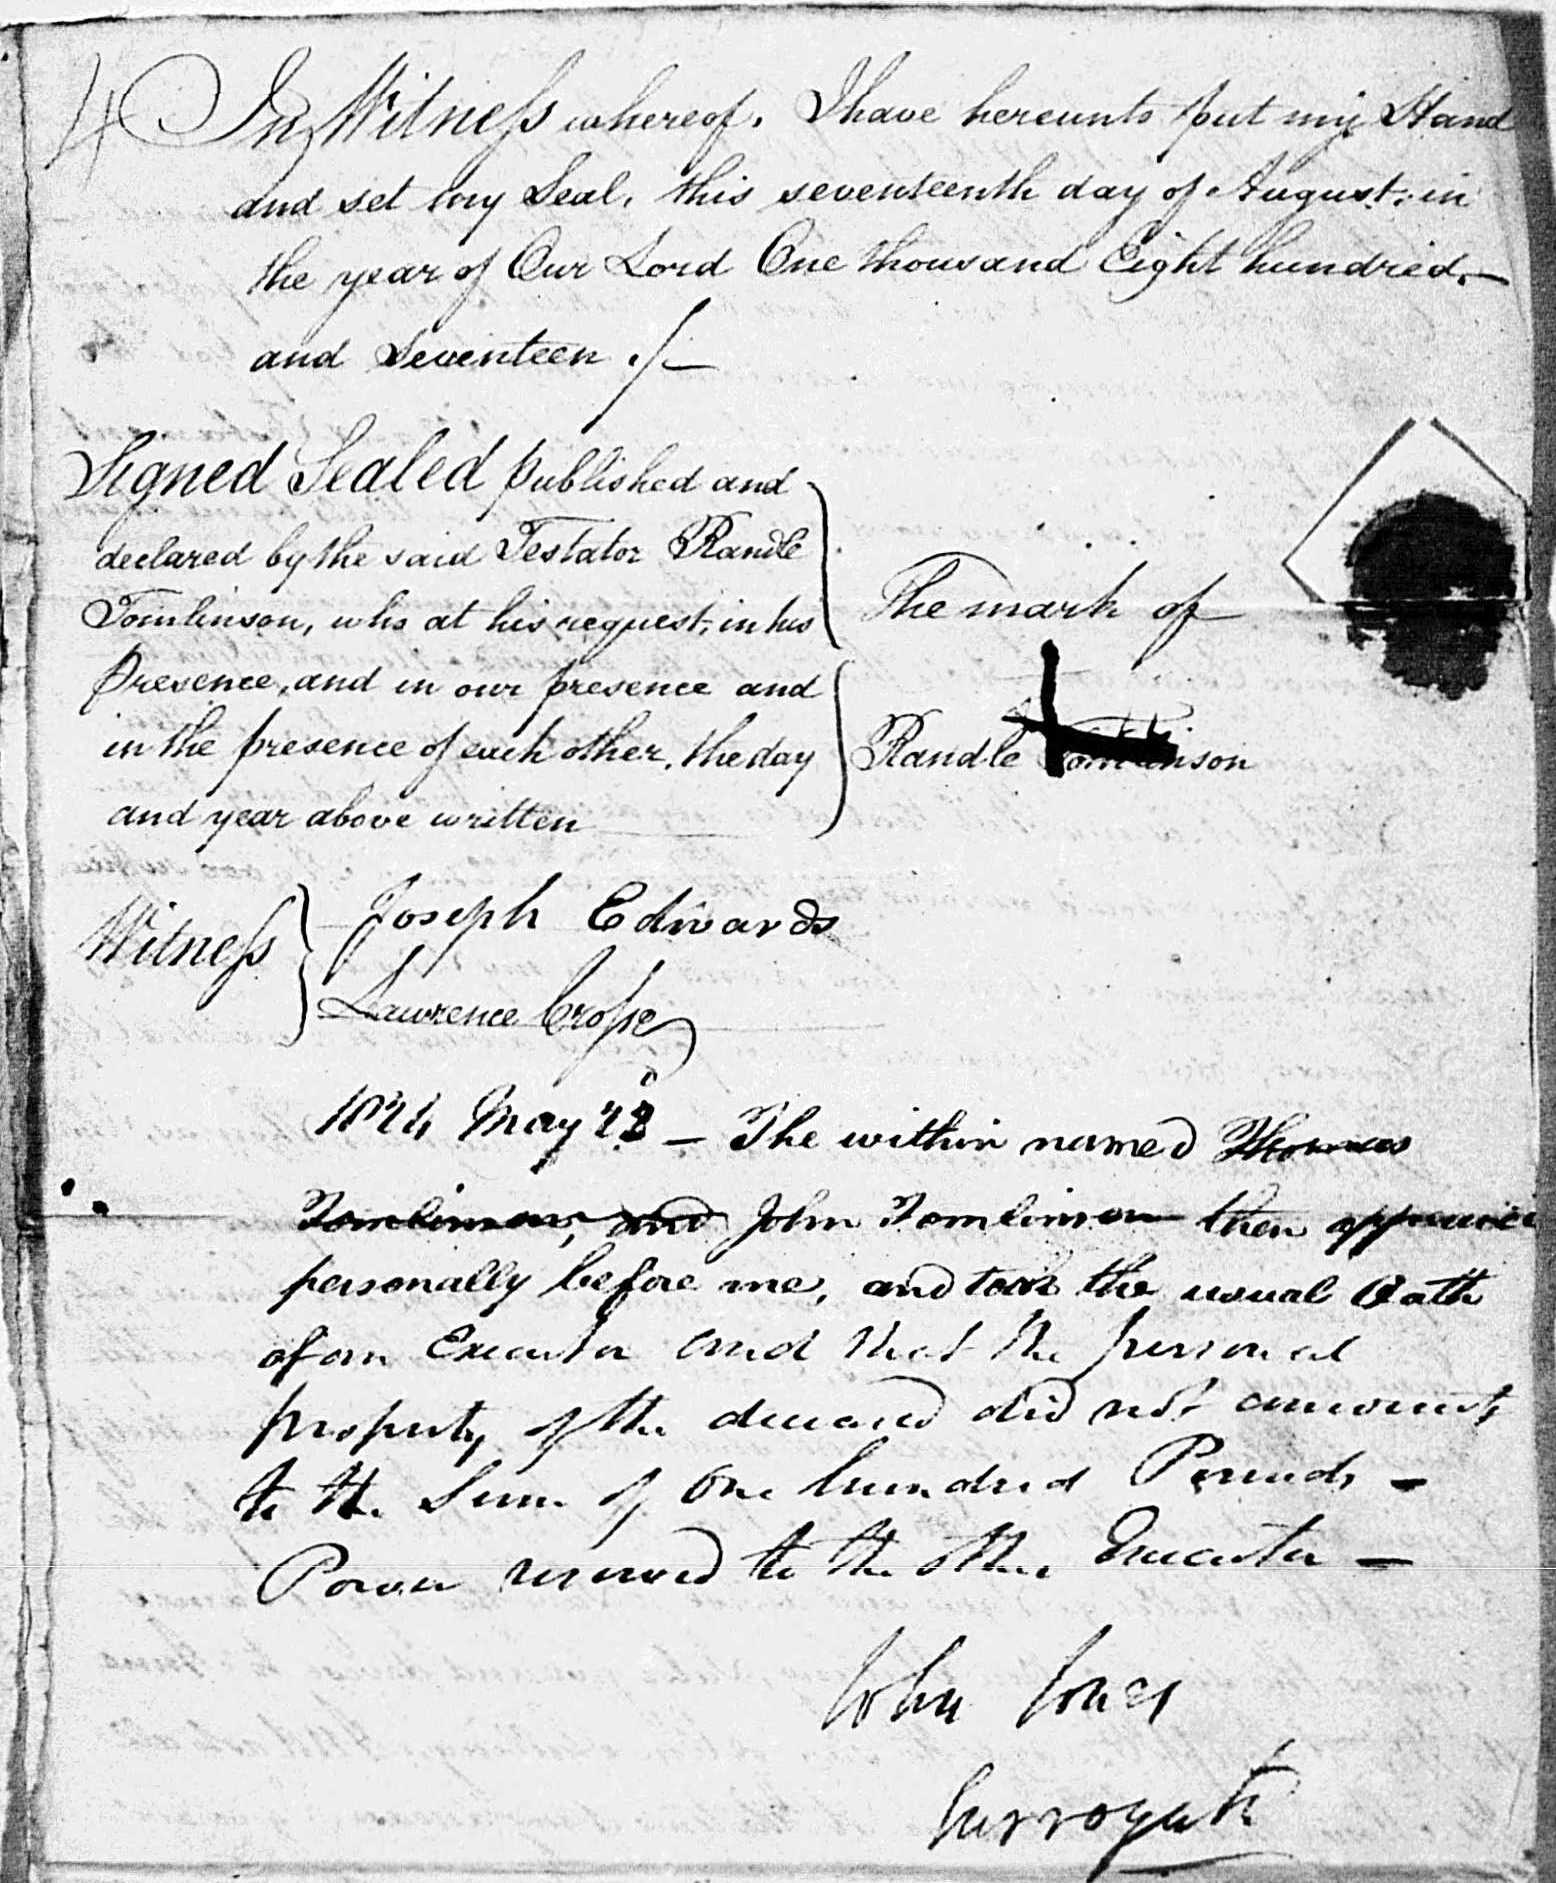 4 In Witness whereof, I have hereunto put my Hand
and set my Seal, this seventeenth day of August, in
the year of Our Lord One thousand Eight hundred
and Seventeen ./—
Signed Sealed published and
declared by the said Testator Randle
Tomlinson, who at his request, in his
Presence, and in our presence and
in the presence of each other, the day
and year above written
The mark of
Randle Tomlinson
Witness
Joseph Edwards
Lawrence Crosse
1824 May — The within named Thomas
Tomlinson, and John Tomlinson then appeared
personally before me, and took the usual Oath
of an Executor and that the personal
property of the deceased did not amount
to the Sum of One hundred Pounds —
Power reserved to the other Executor —
John Jones
Surrogate